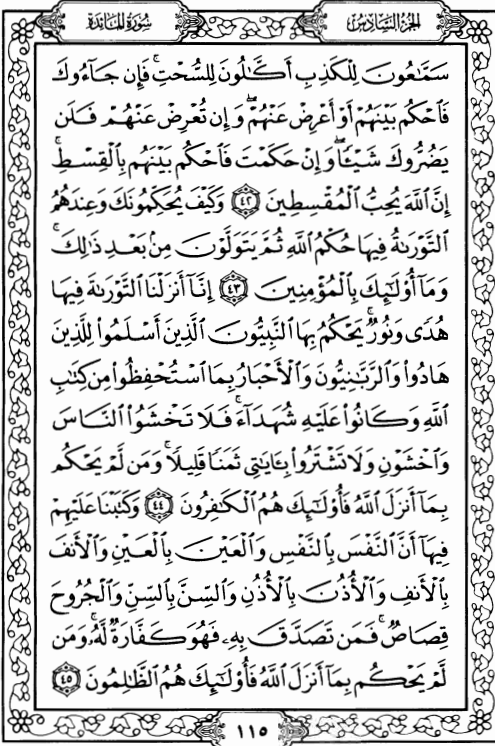 سورة المائدة
الجزء السادس
سَمَّٰعُونَ لِلْكَذِبِ أَكَّٰلُونَ لِلسُّحْتِ ۚ فَإِن جَآءُوكَ
فَٱحْكُم بَيْنَهُمْ أَوْ أَعْرِضْ عَنْهُمْ ۖ وَإِن تُعْرِضْ عَنْهُمْ فَلَن
يَضُرُّوكَ شَيْـًٔا ۖ وَإِنْ حَكَمْتَ فَٱحْكُم بَيْنَهُم بِٱلْقِسْطِ ۚ
إِنَّ ٱللَّهَ يُحِبُّ ٱلْمُقْسِطِينَ ٤٢ وَكَيْفَ يُحَكِّمُونَكَ وَعِندَهُمُ
ٱلتَّوْرَىٰةُ فِيهَا حُكْمُ ٱللَّهِ ثُمَّ يَتَوَلَّوْنَ مِنۢ بَعْدِ ذَٰلِكَ ۚ
وَمَآ أُو۟لَٰٓئِكَ بِٱلْمُؤْمِنِينَ ٤٣ إِنَّآ أَنزَلْنَا ٱلتَّوْرَىٰةَ فِيهَا
هُدًى وَنُورٌ ۚ يَحْكُمُ بِهَا ٱلنَّبِيُّونَ ٱلَّذِينَ أَسْلَمُوا۟ لِلَّذِينَ
هَادُوا۟ وَٱلرَّبَّٰنِيُّونَ وَٱلْأَحْبَارُ بِمَا ٱسْتُحْفِظُوا۟ مِن كِتَٰبِ
ٱللَّهِ وَكَانُوا۟ عَلَيْهِ شُهَدَآءَ ۚ فَلَا تَخْشَوُا۟ ٱلنَّاسَ
وَٱخْشَوْنِ وَلَا تَشْتَرُوا۟ بِـَٔايَٰتِى ثَمَنًا قَلِيلًا ۚ وَمَن لَّمْ يَحْكُم
بِمَآ أَنزَلَ ٱللَّهُ فَأُو۟لَٰٓئِكَ هُمُ ٱلْكَٰفِرُونَ ٤٤ وَكَتَبْنَا عَلَيْهِمْ
فِيهَآ أَنَّ ٱلنَّفْسَ بِٱلنَّفْسِ وَٱلْعَيْنَ بِٱلْعَيْنِ وَٱلْأَنفَ
بِٱلْأَنفِ وَٱلْأُذُنَ بِٱلْأُذُنِ وَٱلسِّنَّ بِٱلسِّنِّ وَٱلْجُرُوحَ
قِصَاصٌ ۚ فَمَن تَصَدَّقَ بِهِۦ فَهُوَ كَفَّارَةٌ لَّهُۥ ۚ وَمَن
لَّمْ يَحْكُم بِمَآ أَنزَلَ ٱللَّهُ فَأُو۟لَٰٓئِكَ هُمُ ٱلظَّٰلِمُونَ ٤٥
١١٥